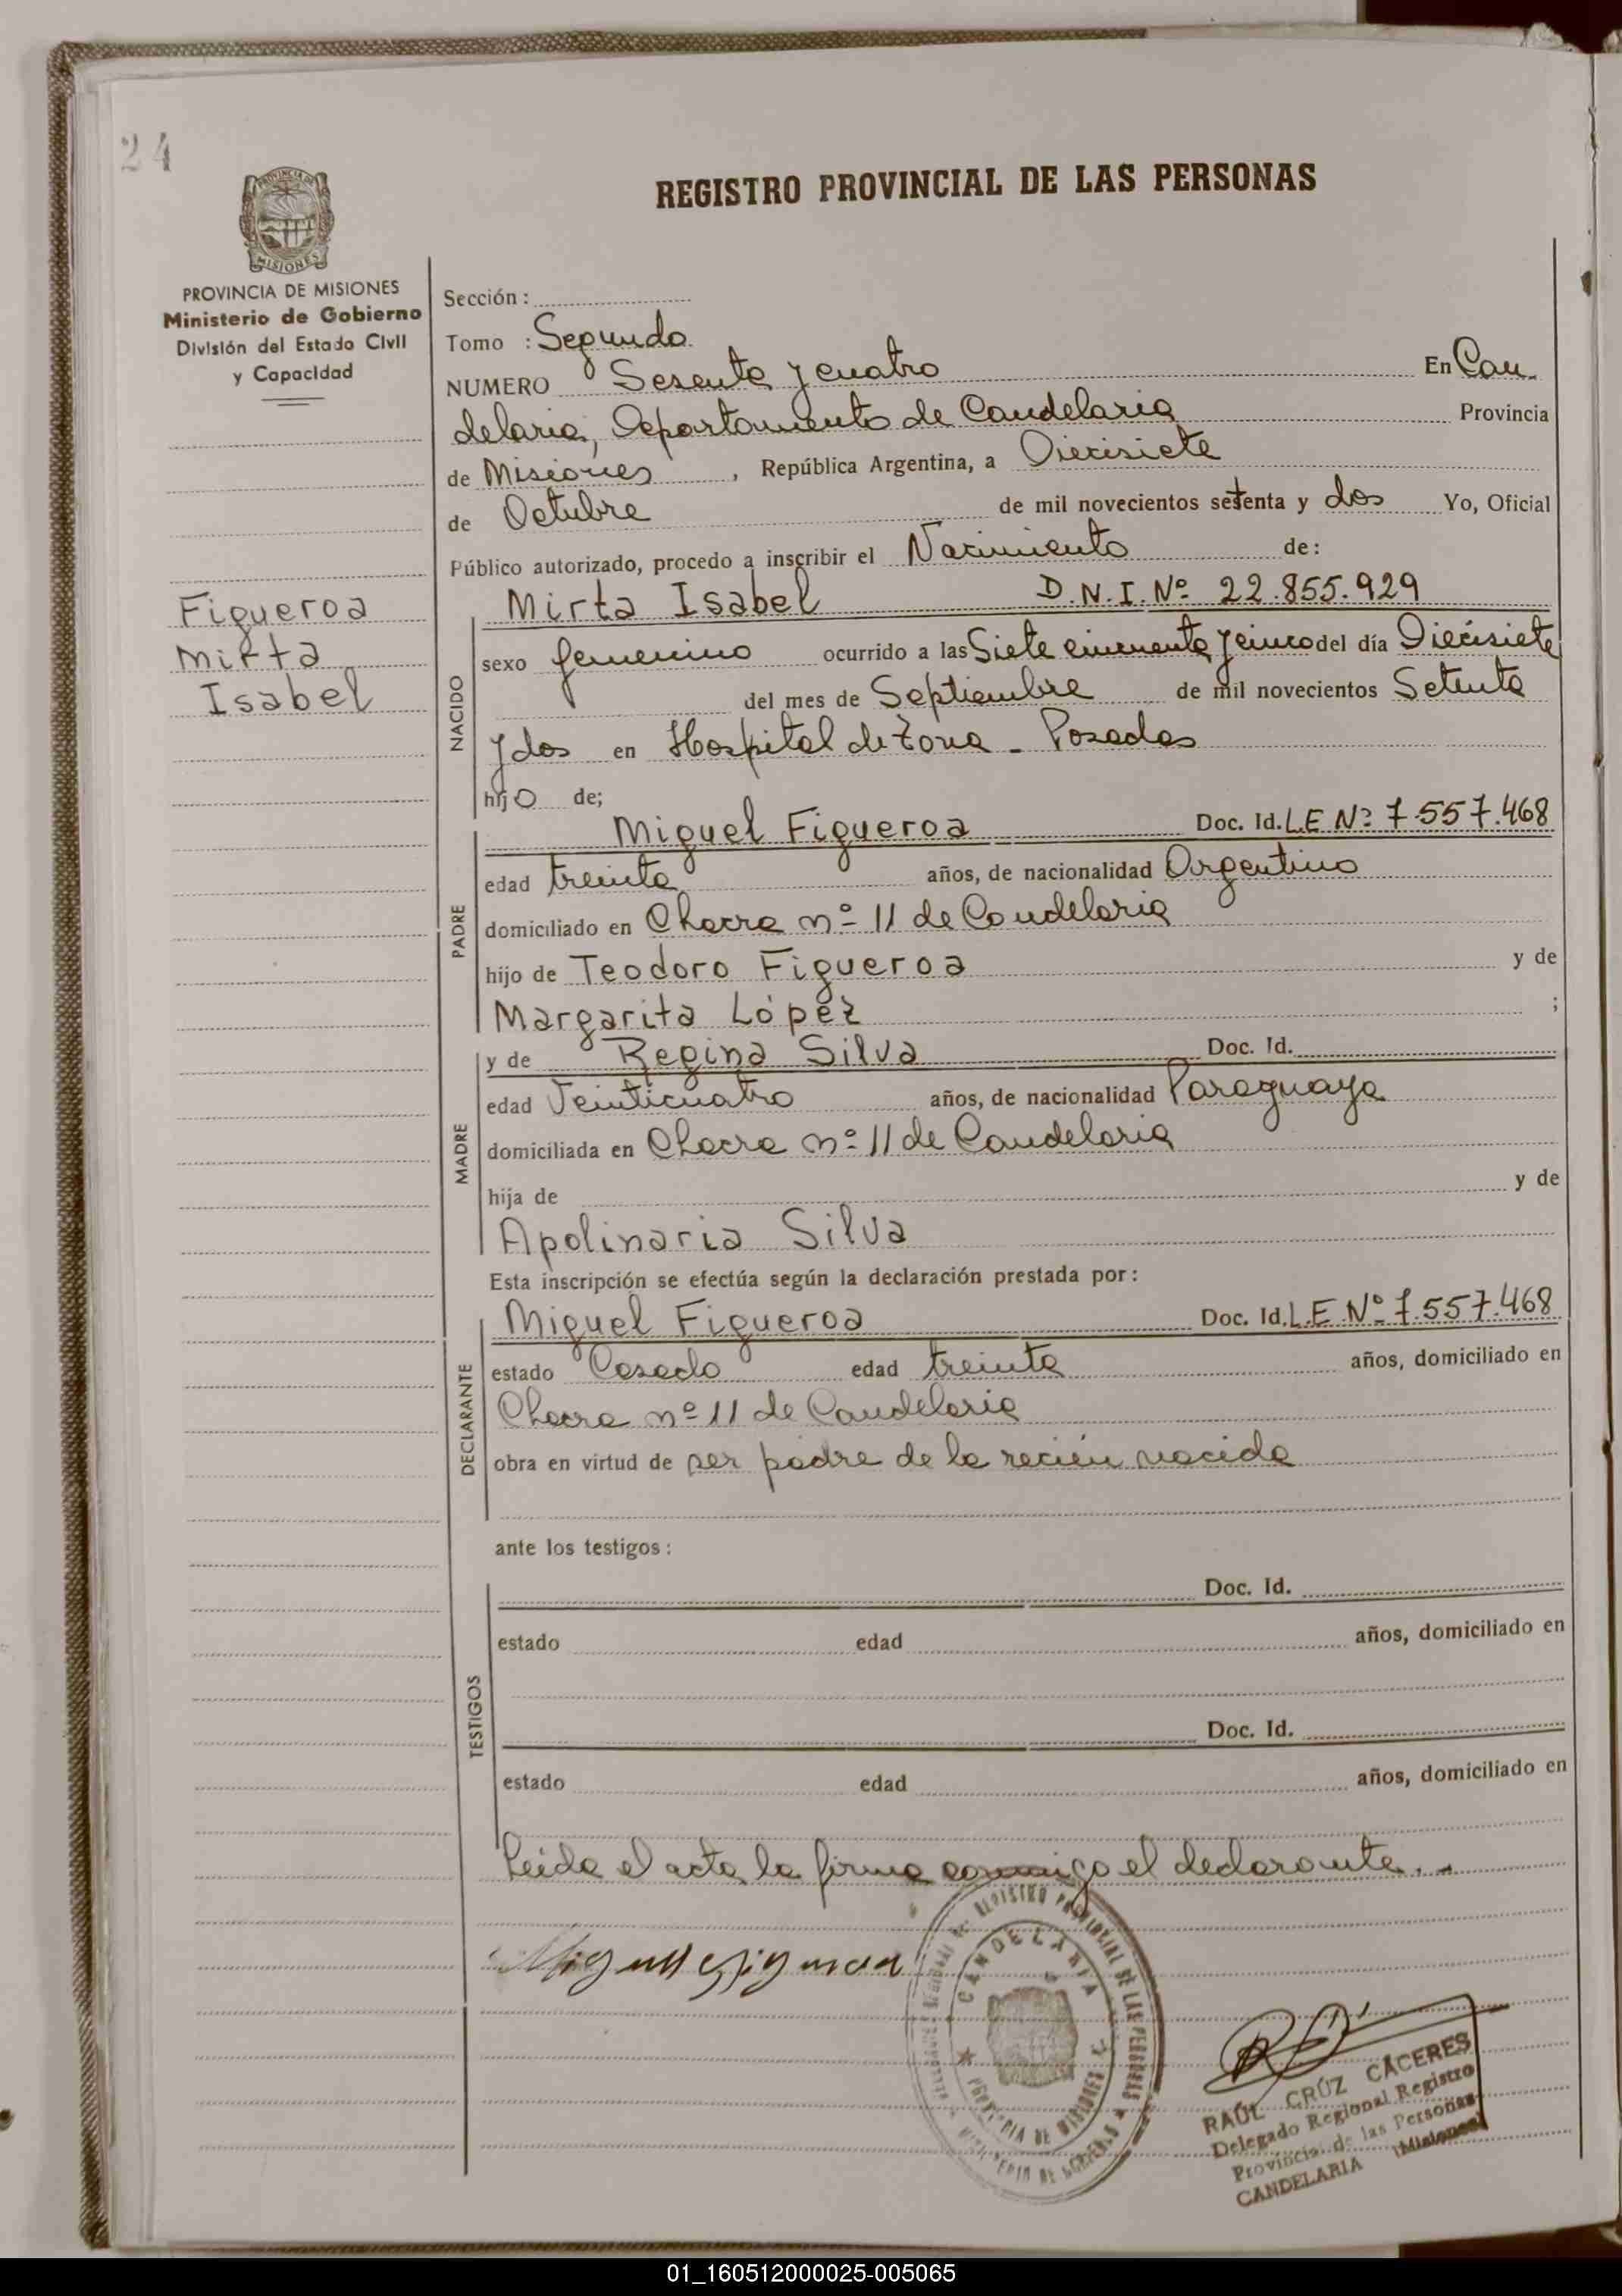 24
REGISTRO PROVINCIAL DE LAS PERSONAS
PROVINCIA DE MISIONES
MISIONES
PROVINCIA DE MISIONES
Ministerio de Gobierno
División del Estado Civil
y Capacidad
Figueroa
Mirta
Isabel
Sección :
Tomo : Segundo
NUMERO Sesenta y cuatro En Can
delaria, Departamento de Candelaria Provincia
de Misiones , República Argentina, a Diecisiete
de Octubre de mil novecientos setenta y dos Yo, Oficial
Público autorizado, procedo a inscribir el Nacimiento de:
NACIDO
Mirta Isabel D.N.I.Nº 22.855.929
sexo femenino ocurrido a las Siete cincuenta y cinco del día Diecisiete
del mes de Septiembre de mil novecientos Setenta
y dos en Hospital de Zona - Posadas
hijo de;
PADRE
Miguel Figueroa Doc. Id. L.E Nº 7.557.468
edad treinta años, de nacionalidad Argentino
domiciliado en Chacra nº 11 de Candelaria
hijo de Teodoro Figueroa y de
Margarita López ;
MADRE
y de Regina Silva Doc. Id.
edad Veinticuatro años, de nacionalidad Paraguaya
domiciliada en Chacra nº 11 de Candelaria
hija de y de
Apolinaria Silva
Esta inscripción se efectúa según la declaración prestada por:
DECLARANTE
Miguel Figueroa Doc. Id. L.E Nº 7.557.468
estado Casado edad treinta años, domiciliado en
Chacra nº 11 de Candelaria
obra en virtud de ser padre de la recién nacida
ante los testigos:
TESTIGOS
Doc. Id.
estado edad años, domiciliado en
Doc. Id.
estado edad años, domiciliado en
Leída el acta la firma conmigo el declarante. -
Miguel Figueroa
REGISTRO PROVINCIAL DE LAS PERSONAS
CANDELARIA
PROVINCIA DE MISIONES
MINISTERIO DE GOBIERNO
RAÚL CRÚZ CÁCERES
Delegado Regional Registro
Provincial de las Personas
CANDELARIA (Misiones)
01_160512000025-005065